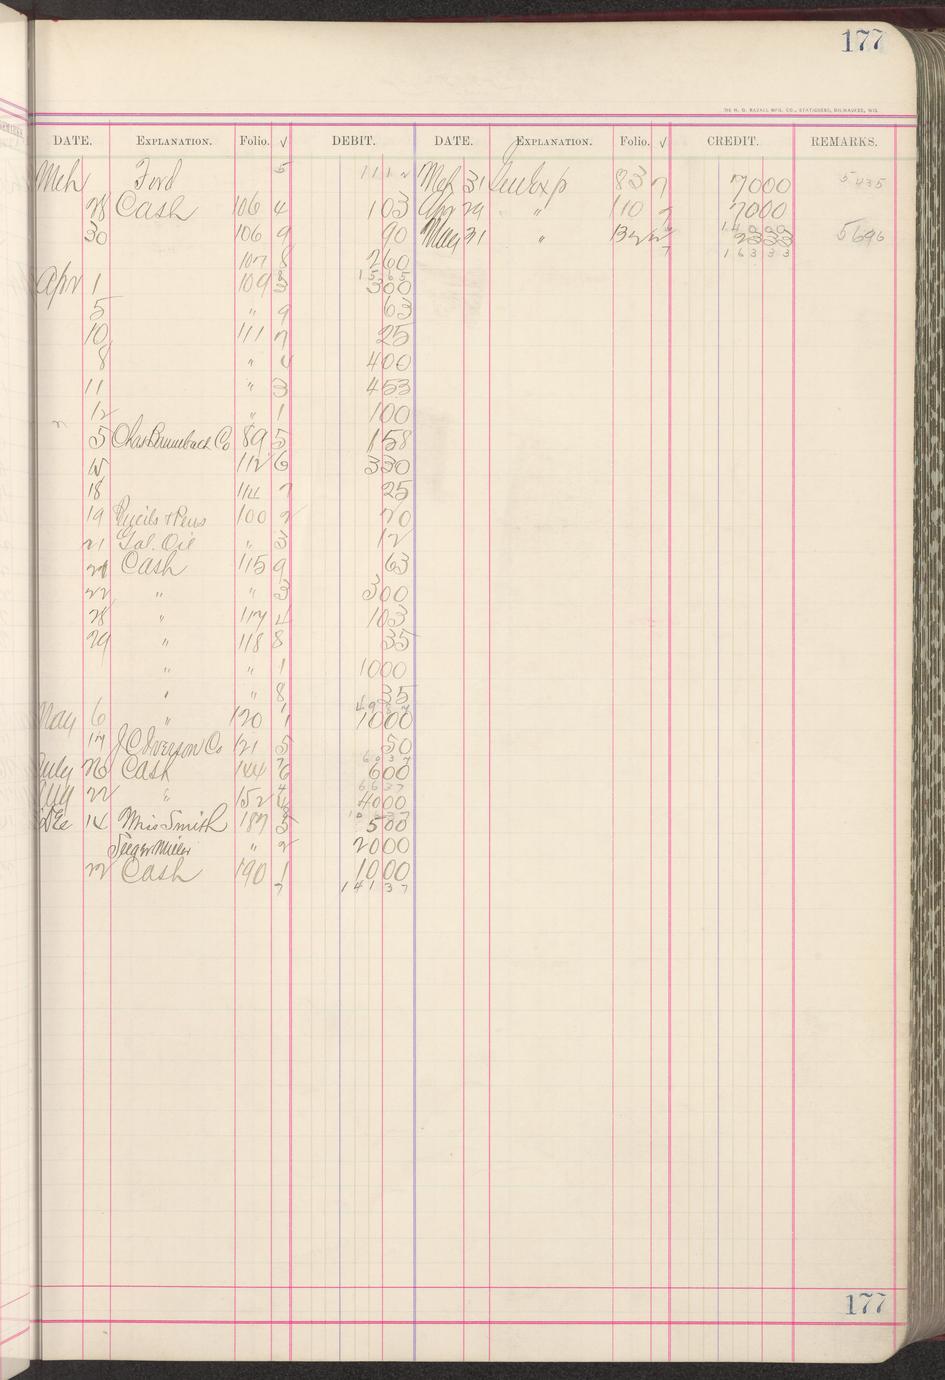 177
THE H. G. RAZALL MFG. CO., STATIONERS, MILWAUKEE, WIS.
DATE. EXPLANATION. Folio. √ DEBIT. DATE. EXPLANATION. Folio. √ CREDIT. REMARKS.
Mch Ford 5 1112 Mch 31 83 7 7000 5435
28 Cash 106 4 103 Apr 29 " 110 7 7000
14000
30 106 9 90 May 31 " 132 2333 5696
107 8 260 7 16333
1565
Apr 1 109 3 300
5 " 9 63
10 111 7 25
8 " 4 400
11 " 3 453
12 " 1 100
5 Co 89 5 158
15 112 6 330
18 114 7 25
19 Pencils & Pens 100 2 70
21 Gal. Oil " 3 12
Cash 115 9 63
22 " " 3 300
28 " 117 4 103
29 " 118 8 35
" " 1 1000
" " 8 35
May 6 " 120 1 1000
17 J C Iverson Co 121 5 50
6037
July 26 Cash 144 6 600
6637
Aug 22 " 152 4000
10637
Dec 14 Mrs Smith 187 5 500
Miller " 2 2000
22 Cash 190 1 1000
7 14137
177